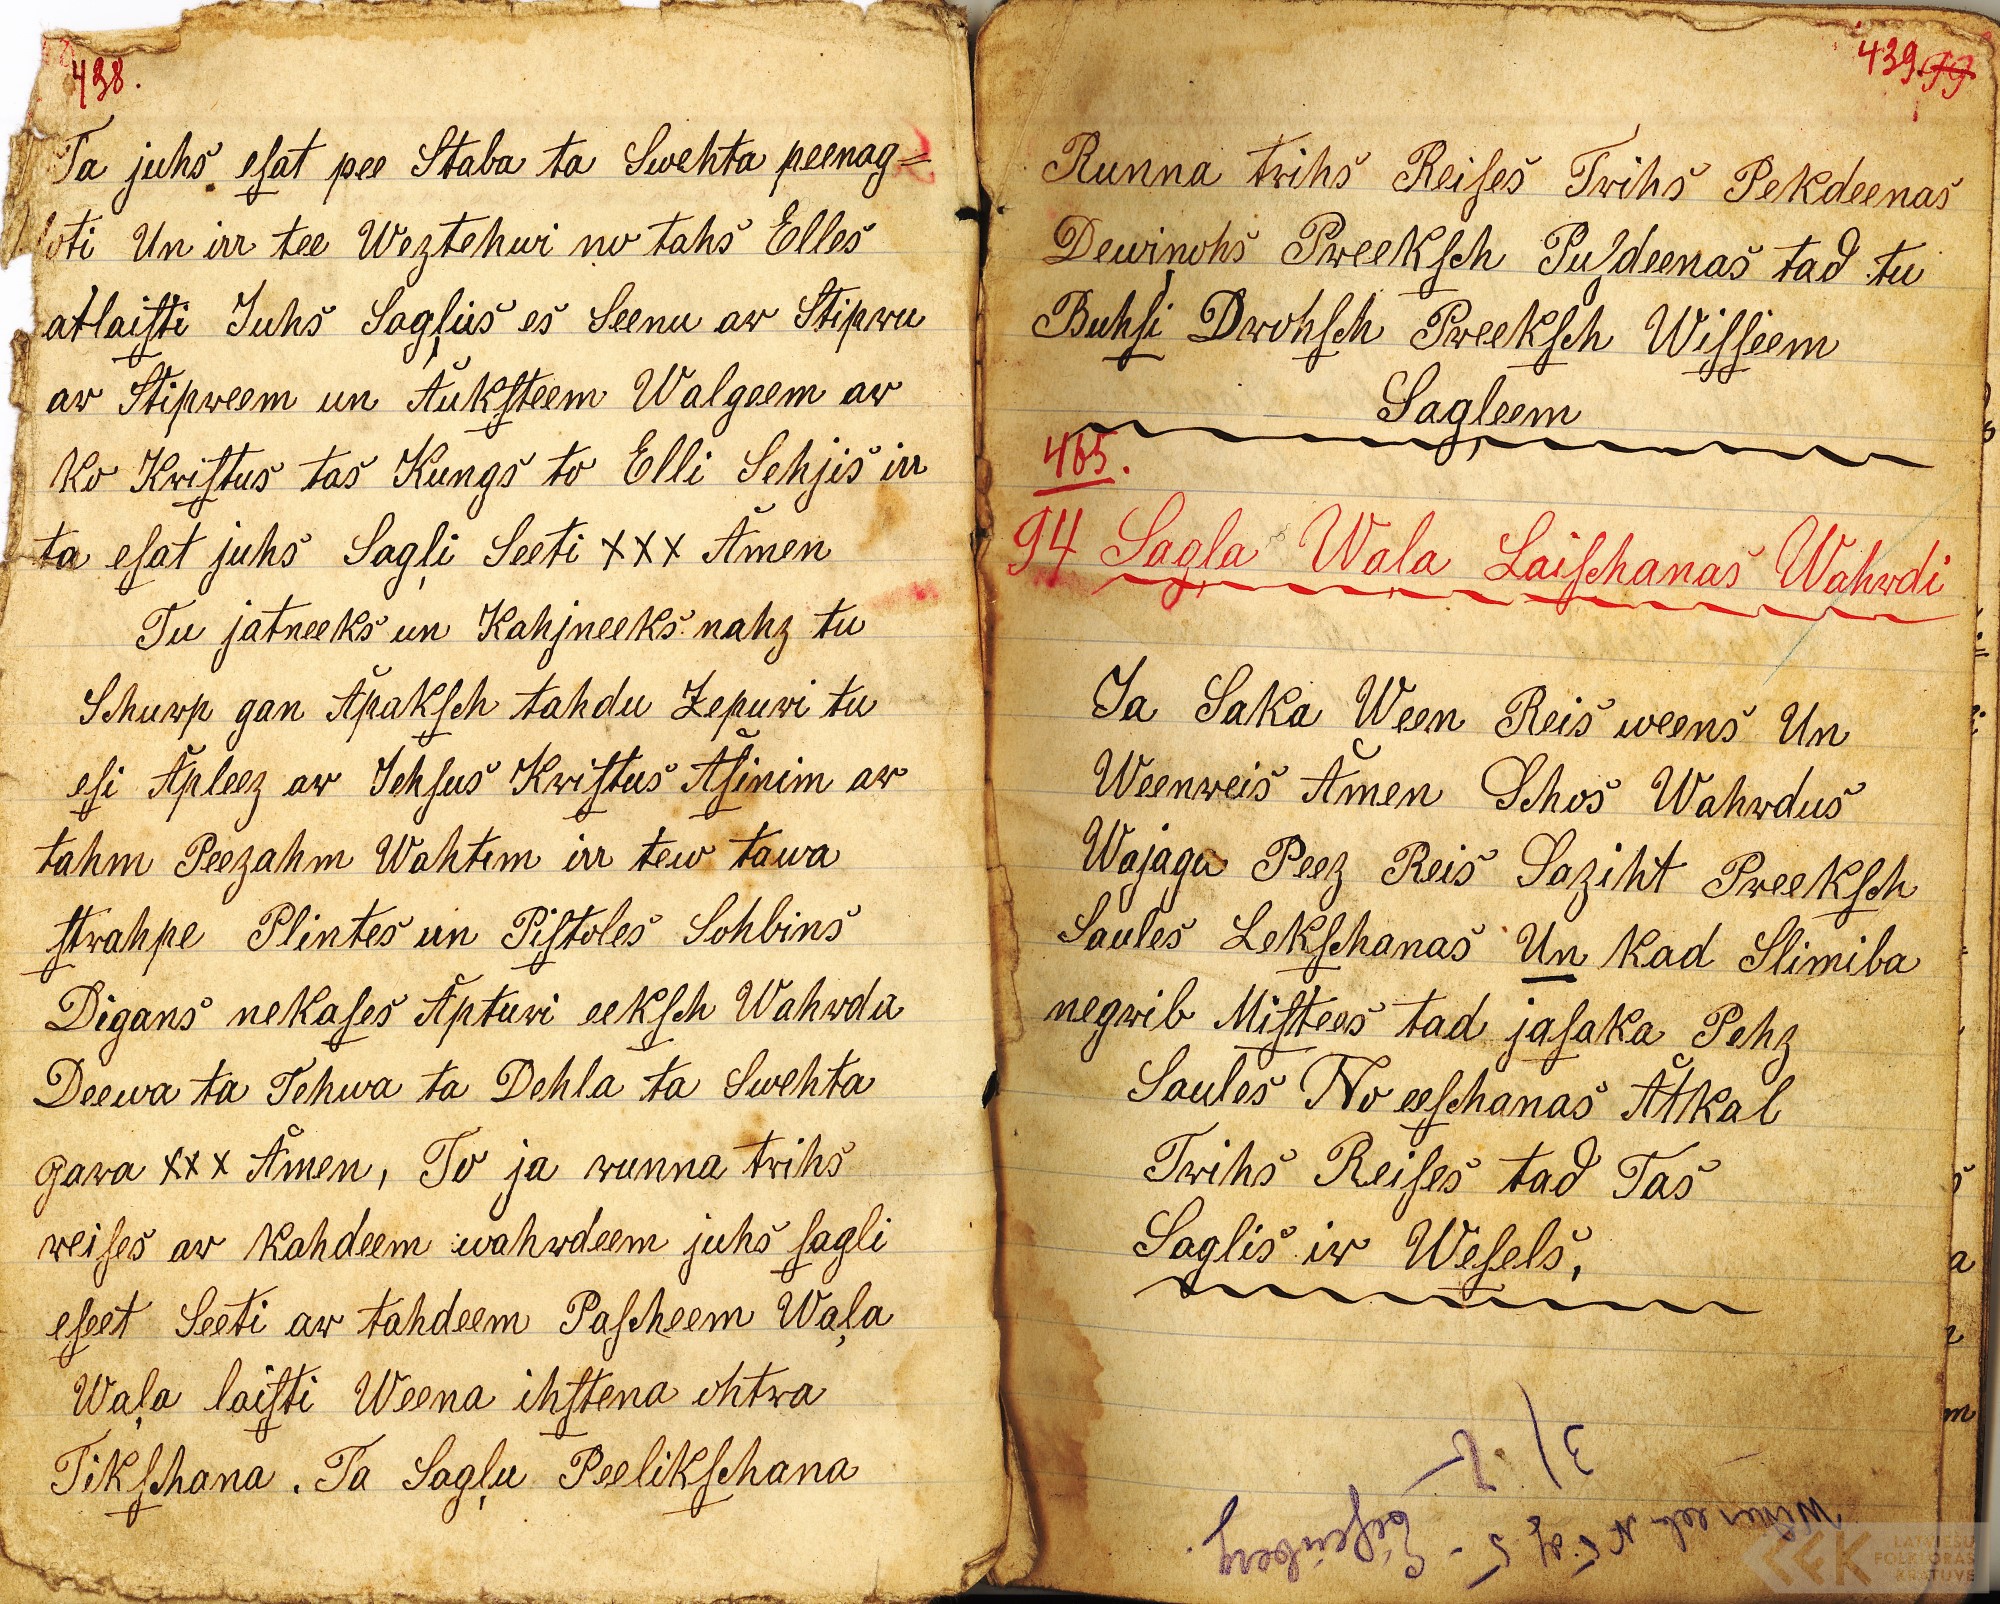 438.
Ta juhs eſat pee Staba ta Swehta peenag=
loti Un irr tee Weztehwi no tahs Elles
atlaiſti Juhs Sagļus es Seenu ar Stipru
ar Stipreem un Aukſteem Walgeem ar
ko Kriſtus tas Kungs to Elli Sehjis irr
ta eſat juhs Sagļi Seeti xxx Amen
Tu jatneeks un Kahjneeks nahz tu
Schurp gan Apakſch tahdu Zepuri tu
eſi Apleez ar Jehſus Kriſtus Aſinim ar
tahm Peezahm Wahtim irr tew tawa
ſtrahpe Plintes un Piſtoles Sohbins
Digans nekaſes Apturi eekſch Wahrda
Deewa ta Tehwa ta Dehla ta Swehta
gara xxx Amen, To ja runna trihs
reiſes ar kahdeem wahrdeem juhs ſagli
eſeet Seeti ar tahdeem Paſcheem Waļa
Waļa laiſti Weena ihſtena ohtra
Tikſchana. Ta Sagļu Peelikſchana
439 99
Runna trihs Reiſes Trihs Pekdeenas
Dewinohs Preekſch Puſdeenas tad tu
Buhſi Drohſch Preekſch Wiſſeem
Sagļeem
465.
94 Sagļa Wala Laiſchanas Wahrdi
Ja Saka Ween Reis weens Un
Weenreis Amen Schos Wahrdus
Wajaga Peez Reis Saziht Preekſch
Saules Lekſchanas Un kad Slimiba
negrib Miſtees tad jaſaka Pehz
Saules No eeſchanas Atkal
Trihs Reiſes tad Tas
Saglis ir Weſels,
LATVIEŠU
FOLKLORAS
KRĀTUVE